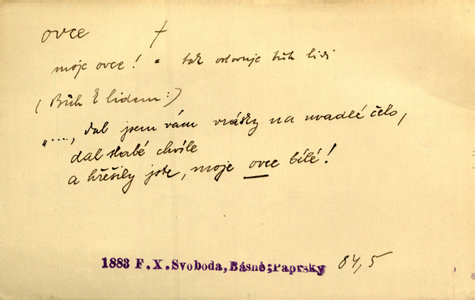 ovce †
moje ovce! = tak oslovuje bůh lidi
(Bůh k lidem:)
"...., dal jsem vám vrásky na uvadlé čelo,
dal slabé chvíle
a hřešily jste, moje ovce bílé!
1883 F.X.Svoboda, Básně;Paprsky 84,5